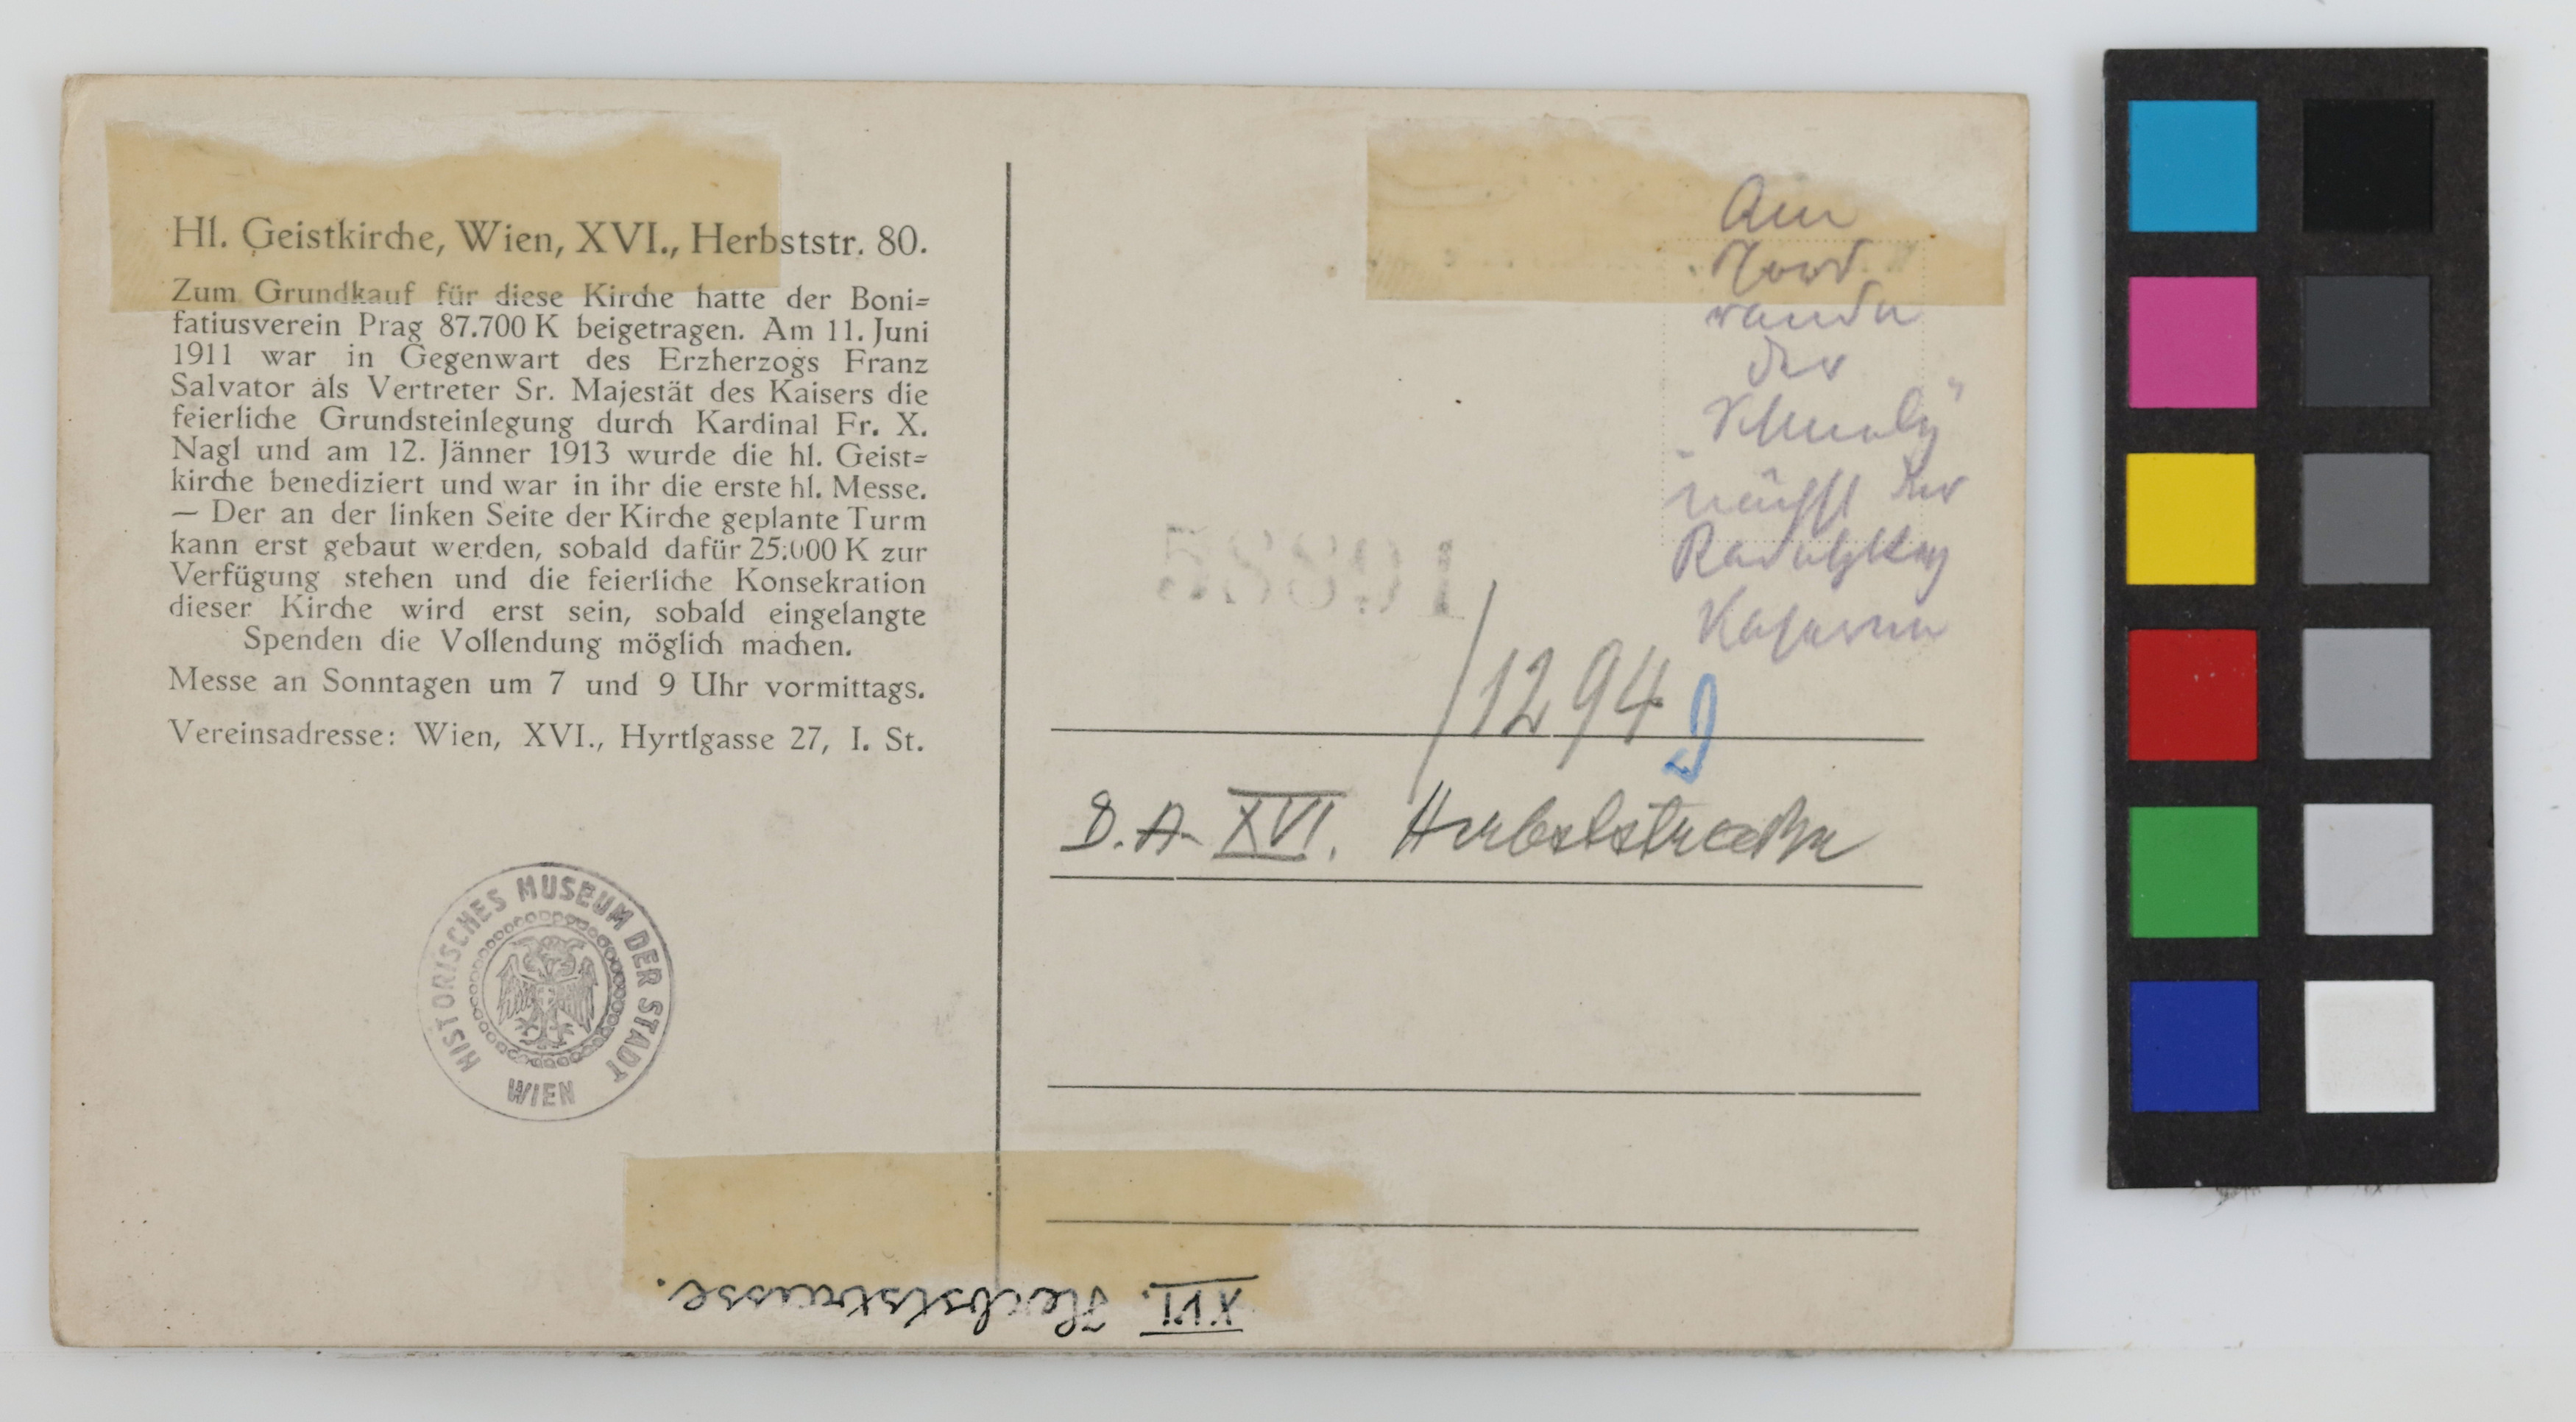 Hl. Geistkirche, Wien, XVI., Herbststr. 80.
Zum Grundkauf für diese Kirche hatte der Boni=
fatiusverein Prag 87.700 K beigetragen. Am 11. Juni
1911 war in Gegenwart des Erzherzogs Franz
Salvator als Vertreter Sr. Majestät des Kaisers die
feierliche Grundsteinlegung durch Kardinal Fr. X.
Nagl und am 12. Jänner 1913 wurde die hl. Geist=
kirche benediziert und war in ihr die erste hl. Messe.
— Der an der linken Seite der Kirche geplante Turm
kann erst gebaut werden, sobald dafür 25.000 K zur
Verfügung stehen und die feierliche Konsekration
dieser Kirche wird erst sein, sobald eingelangte
Spenden die Vollendung möglich machen.
Messe an Sonntagen um 7 und 9 Uhr vormittags.
Vereinsadresse: Wien, XVI., Hyrtlgasse 27, I. St.
HISTORISCHES MUSEUM DER STADT
WIEN
Am
Nord
rande
der
"Schmelz"
nächst der
Radetzky
Kaserne
58891
/1294
D. A. XVI. Herbststrasse
XVI. Herbststrasse.